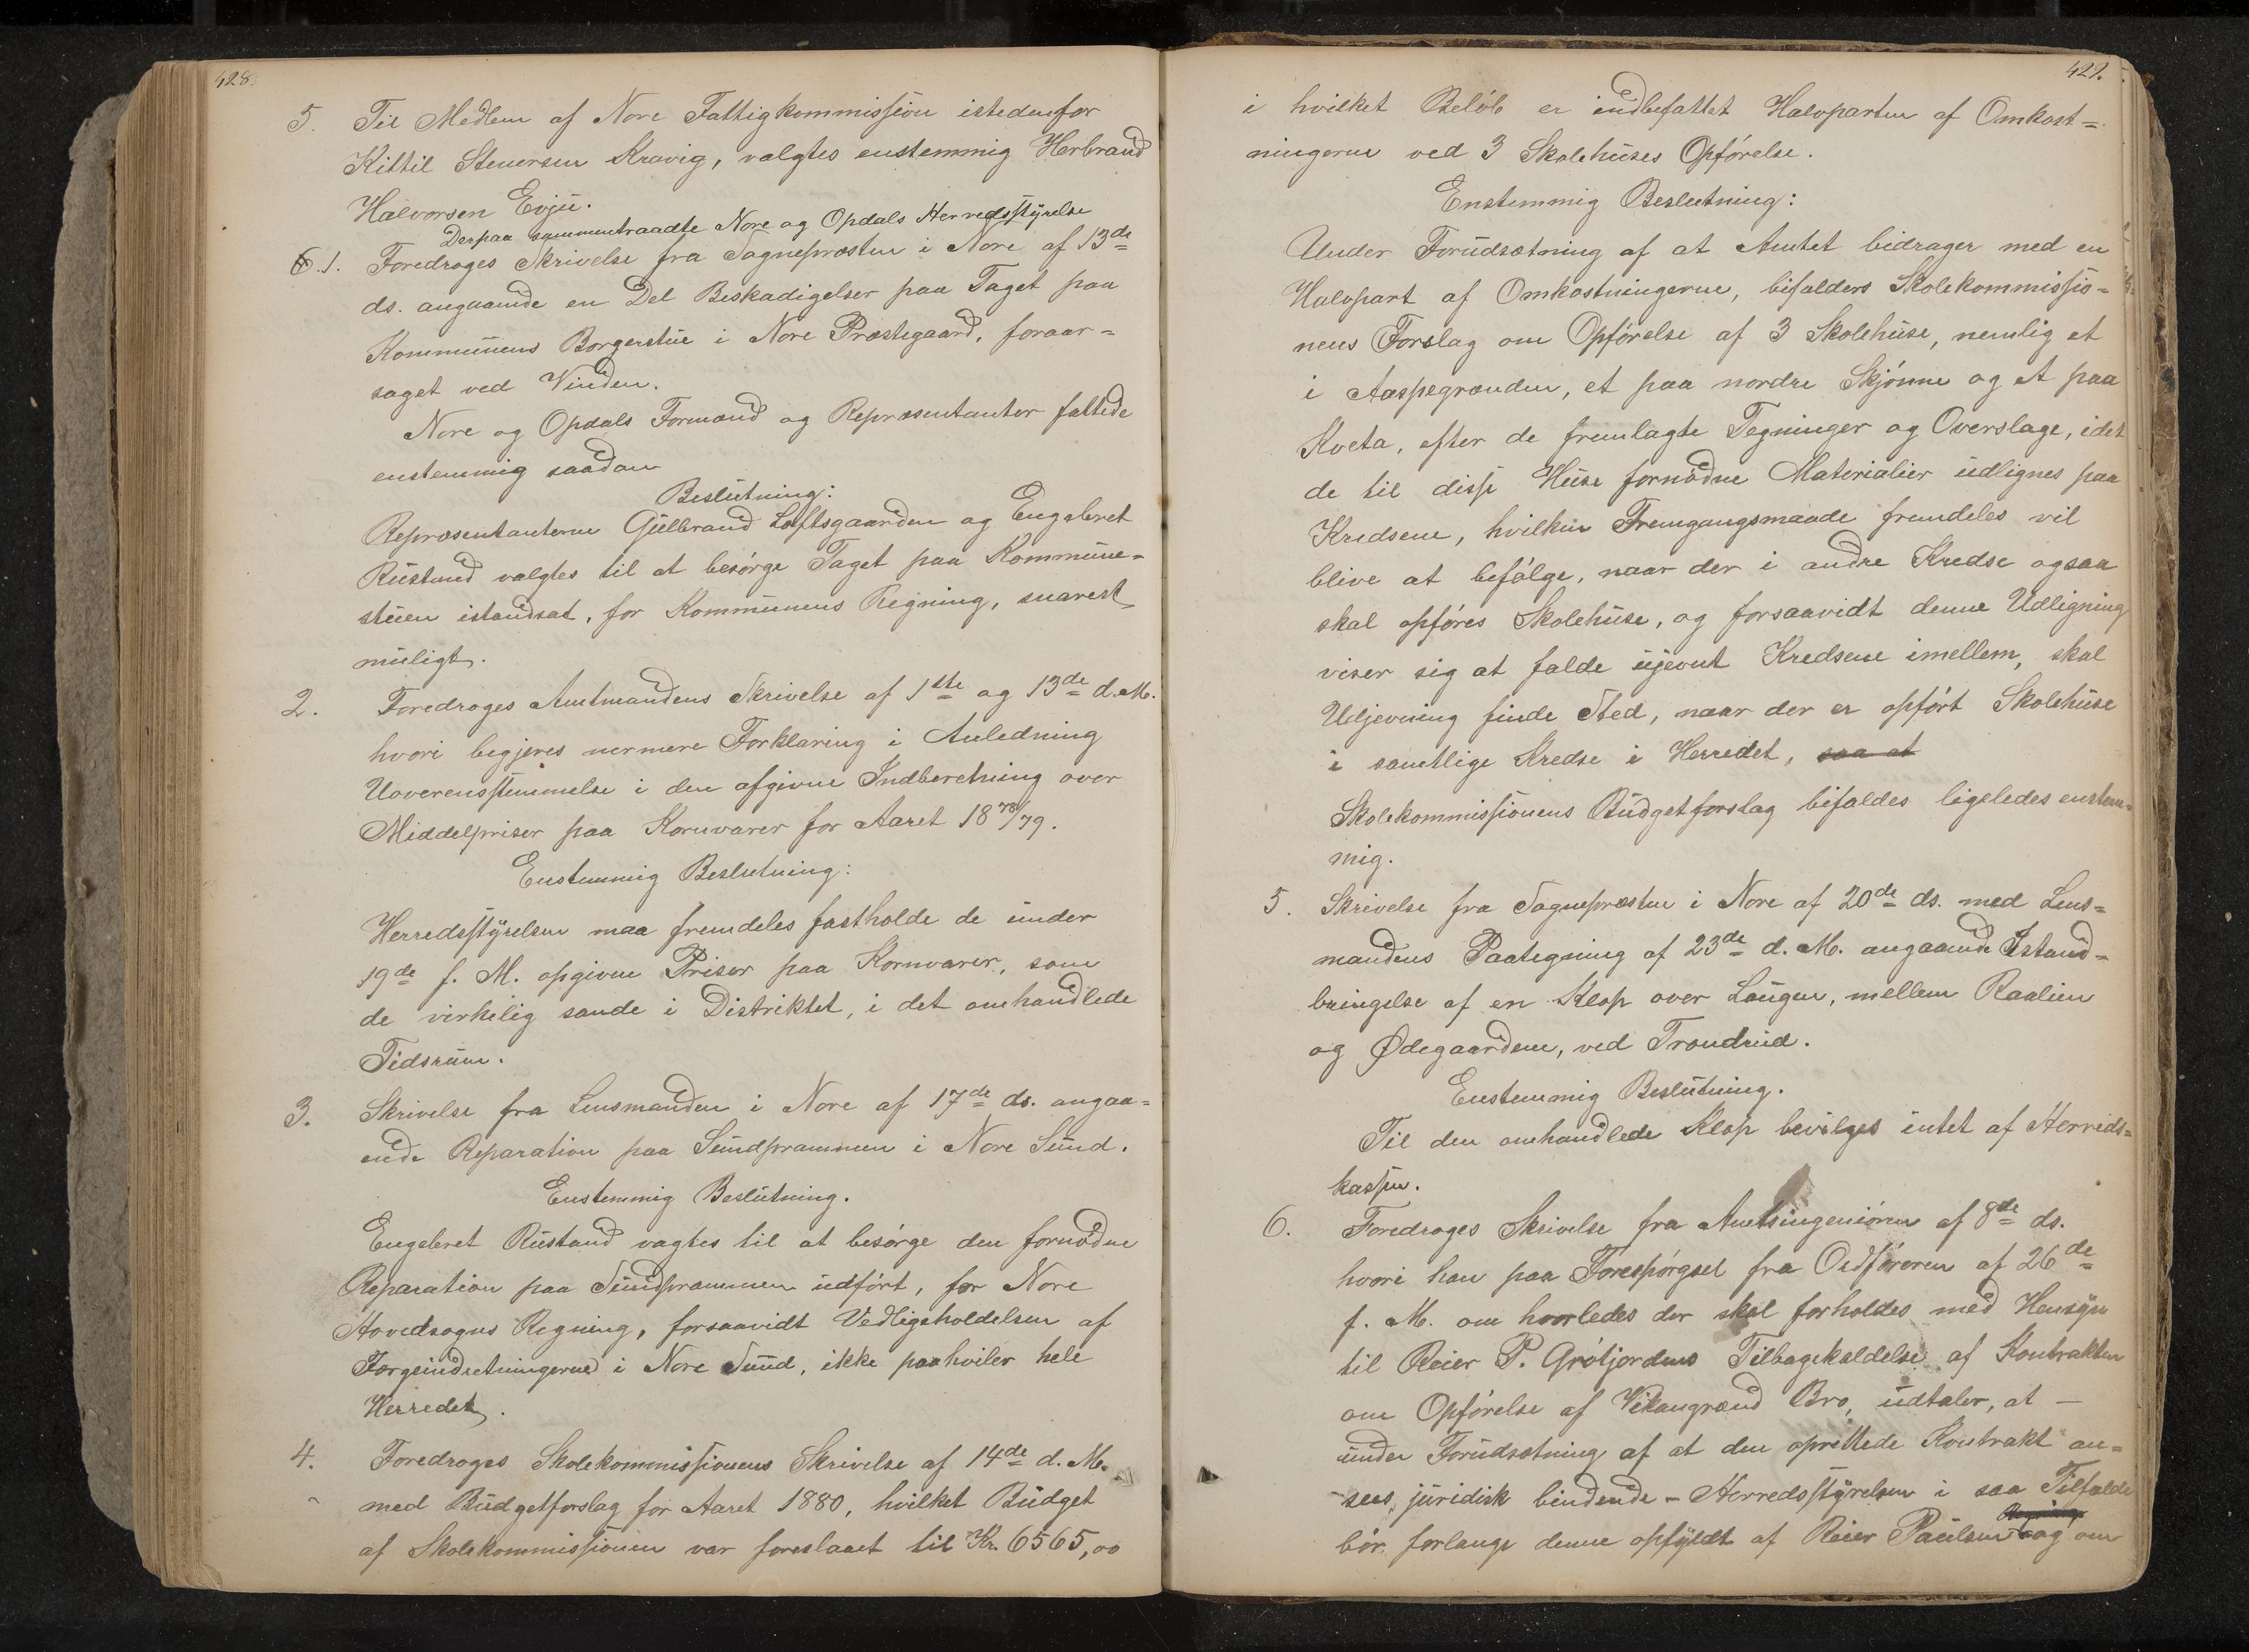 428.
5. Til Medlem af Nore Fattigkommission istedenfor
Kittil Stenersen Kravig, valgtes enstemmig Herbrand
Halvorsen Evju.
Derpaa sammentraadte Nore og Opdals Herredsstyrelse
6. 1. Foredroges Skrivelse fra Sognepræsten i Nore af 13de
ds. angaaende en Del Beskadigelser paa Taget paa
Kommunens Borgerstue i Nore Præstegaard, foraar=
saget ved Vinden.
Nore og Opdals Formænd og Repræsentanter fattede
enstemmig saadan
Beslutning:
Repræsentanterne Gulbrand Loftsgaarden og Engebret
Rustand valgtes til at besørge Taget paa Kommune=
stuen istandsat, for Kommunens Regning, snarest
muligt.
2. Foredroges Amtmandens Skrivelse af 1ste og 13de d.M.
hvori begjeres nermere Forklaring i Anledning
Uoverensstemmelse i den afgivne Indberetning over
Middelpriser paa Kornvarer for Aaret 1878/79.
Enstemmig Beslutning:
Herredsstyrelsen maa fremdeles fastholde de under
19de f. M. opgivne Priser paa Kornvarer, som
de virkelig sande i Distriktet, i det omhandlede
Tidsrum.
3. Skrivelse fra Lensmanden i Nore af 17de ds. angaa=
ende Reparation paa Sundprammen i Nore Sund.
Enstemmig Beslutning.
Engebret Rustand vagtes til at besørge den fornødne
Reparation paa Sundprammen udført, for Nore
Hovedsogns Regning, forsaavidt Vedligeholdelsen af
Færgeindretningerne i Nore Sund, ikke paahviler hele
Herredet.
4. Foredroges Skolekommissionens Skrivelse af 14de d. M.
med Budgetforslag for Aaret 1880, hvilket Budget
af Skolekommissionen var foreslaaet til Kr. 6565,00
429.
i hvilket Beløb er indbefattet Halvparten af Omkost=
ningerne ved 3 Skolehuses Opførelse.
Enstemmig Beslutning:
Under Forudsætning af at Amtet bidrager med en
Halvpart af Omkostningerne, bifaldes Skolekommissio=
nens Forslag om Opførelse af 3 Skolehuse, nemlig et
i Aaspegrænden, et paa nordre Skjønne og et paa
Kveta, efter de fremlagte Tegninger og Overslage, idet
de til disse Huse fornødne Materialier udlignes paa
Kredsene, hvilken Fremgangsmaade fremdeles vil
blive at befølge, naar der i andre Kredse ogsaa
skal opføres Skolehuse, og forsaavidt denne Udligning
viser sig at falde ujevnt Kredsene imellem, skal
Udjevning finde Sted, naar der er opført Skolehuse
i samtlige Kredse i Herredet, saa at
Skolekommissionens Budgetforslag bifaldes ligeledes enstem=
mig.
5. Skrivelse fra Sognepræsten i Nore af 20de ds. med Lens=
mandens Paategning af 23de d. M. angaaende Istand=
bringelse af en Klop over Laugen, mellem Raalien
og Ødegaardene, ved Trondrud.
Enstemmig Beslutning.
Til den omhandlede Klop bevilges intet af Herreds=
kassen.
6. Foredroges Skrivelse fra Amtsingeniøren af 8de ds.
hvori han paa Forespørgsel fra Ordføreren af 26de
f. M. om hvorledes der skal forholdes med Hensyn
til Reier P. Grøtjordens Tilbagekaldelse af Kontrakten
om Opførelse af Vikangrænd Bro, udtaler, at —
under Forudsætning af at den oprettede Kontrakt an=
sees juridisk bindende – Herredsstyrelsen i saa Tilfælde
bør forlange denne opfyldt af Reier Paulsen og om